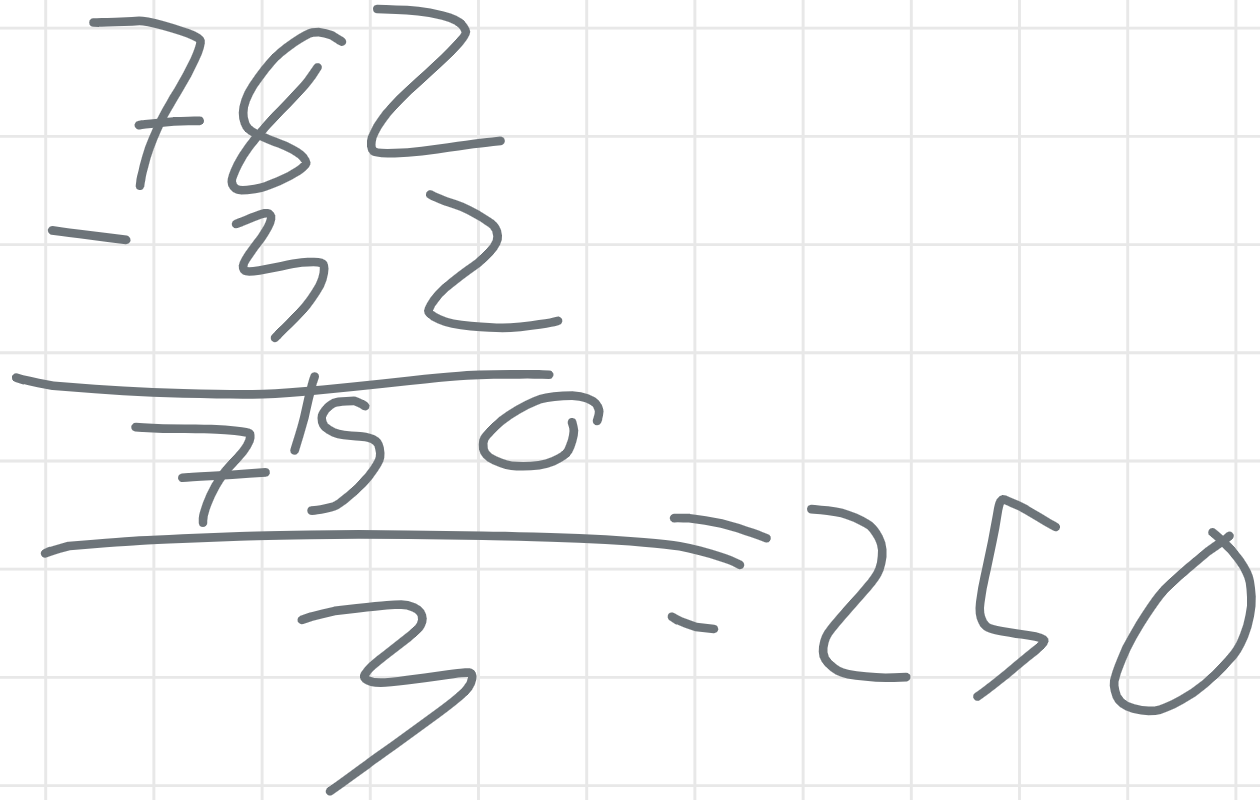 782
- 32
750
3
= 250